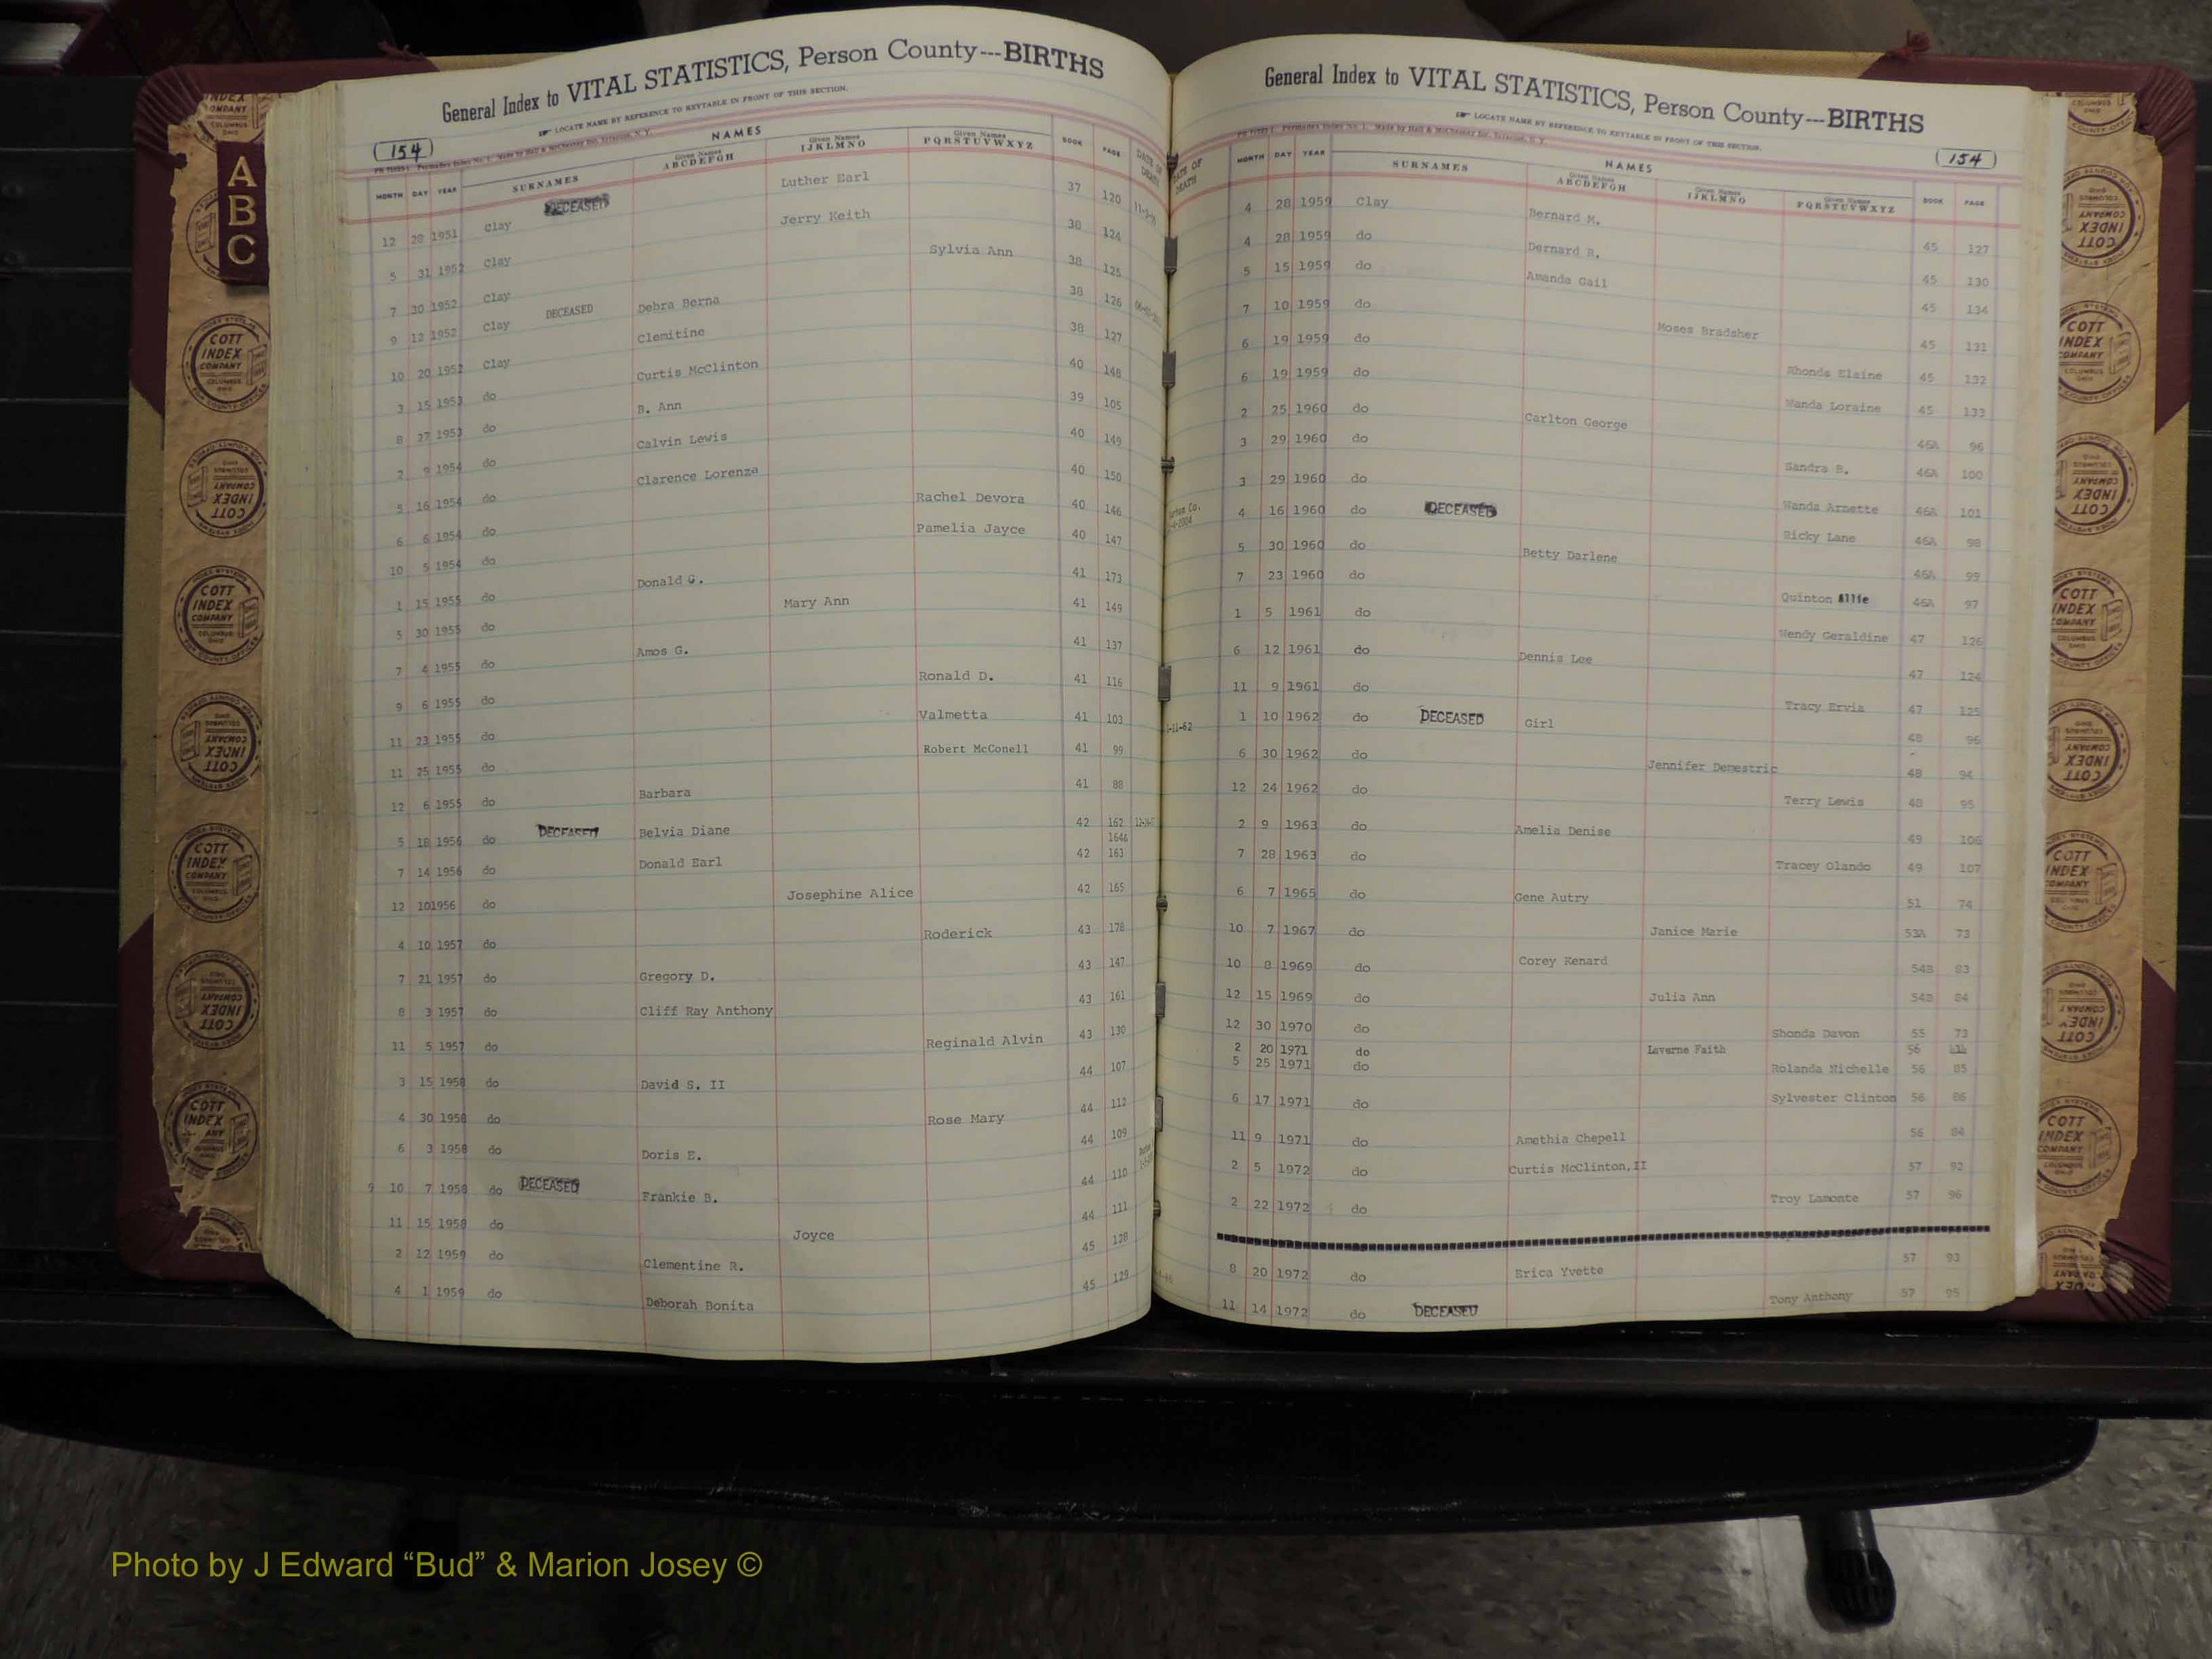 General Index to VITAL STATISTICS, Person County---BIRTHS
LOCATE NAME BY REFERENCE TO KEYTABLE IN FRONT OF THIS SECTION.
154
NAMES
MONTH DAY YEAR SURNAMES Given Names ABCDEFGH Given Names IJKLMNO Given Names PQRSTUVWXYZ BOOK PAGE DATE OF DEATH
12 28 1951 Clay DECEASED Luther Earl 37 120
5 31 1952 Clay Jerry Keith 38 124
7 30 1952 Clay Sylvia Ann 38 125
9 12 1952 Clay DECEASED Debra Berna 38 126
10 20 1952 Clay Clemitine 38 127
3 15 1953 do Curtis McClinton 40 148
8 27 1953 do B. Ann 39 105
2 9 1954 do Calvin Lewis 40 149
5 16 1954 do Clarence Lorenza 40 150
6 6 1954 do Rachel Devora 40 146
10 5 1954 do Pamelia Jayce 40 147
1 15 1955 do Donald G. 41 173
5 30 1955 do Mary Ann 41 149
7 4 1955 do Amos G. 41 137
9 6 1955 do Ronald D. 41 116
11 23 1955 do Valmetta 41 103
11 25 1955 do Robert McConell 41 99
12 6 1955 do Barbara 41 88
5 18 1956 do DECEASED Belvia Diane 42 162
164a
7 14 1956 do Donald Earl 42 163
12 10 1956 do Josephine Alice 42 165
4 10 1957 do Roderick 43 178
7 21 1957 do Gregory D. 43 147
8 3 1957 do Cliff Ray Anthony 43 161
11 5 1957 do Reginald Alvin 43 130
3 15 1958 do David S. II 44 107
4 30 1958 do Rose Mary 44 112
6 3 1958 do Doris E. 44 109
9 10 7 1958 do DECEASED Frankie B. 44 110
11 15 1958 do Joyce 44 111
2 12 1959 do Clementine R. 45 128
4 1 1959 do Deborah Bonita 45 129
General Index to VITAL STATISTICS, Person County---BIRTHS
LOCATE NAME BY REFERENCE TO KEYTABLE IN FRONT OF THIS SECTION.
154
NAMES
DATE OF DEATH MONTH DAY YEAR SURNAMES Given Names ABCDEFGH Given Names IJKLMNO Given Names PQRSTUVWXYZ BOOK PAGE
4 28 1959 Clay Bernard M. 45 127
4 28 1959 do Dernard R. 45 130
5 15 1959 do Amanda Gail 45 134
7 10 1959 do Moses Bradsher 45 131
6 19 1959 do Rhonda Elaine 45 132
6 19 1959 do Wanda Loraine 45 133
2 25 1960 do Carlton George 46A 96
3 29 1960 do Sandra B. 46A 100
3 29 1960 do Wanda Arnette 46A 101
4 16 1960 do DECEASED Ricky Lane 46A 98
5 30 1960 do Betty Darlene 46A 99
7 23 1960 do Quinton Allie 46A 97
1 5 1961 do Wendy Geraldine 47 126
6 12 1961 do Dennis Lee 47 124
11 9 1961 do Tracy Ervia 47 125
1-11-62 1 10 1962 do DECEASED Girl 48 96
6 30 1962 do Jennifer Demestric 48 94
12 24 1962 do Terry Lewis 48 95
2 9 1963 do Amelia Denise 49 106
7 28 1963 do Tracey Olando 49 107
6 7 1965 do Gene Autry 51 74
10 7 1967 do Janice Marie 53A 73
10 8 1969 do Corey Kenard 54B 83
12 15 1969 do Julia Ann 54B 84
12 30 1970 do Shonda Davon 55 73
2 20 1971 do Laverne Faith 56
5 25 1971 do Rolanda Nichelle 56 85
6 17 1971 do Sylvester Clinton 56 86
11 9 1971 do Amethia Chepell 56 84
2 5 1972 do Curtis McClinton,II 57 92
2 22 1972 do Troy Lamonte 57 96
8 20 1972 do Erica Yvette 57 93
11 14 1972 do DECEASED Tony Anthony 57 95
A
B
C
COTT INDEX COMPANY COLUMBUS OHIO
Photo by J Edward “Bud” & Marion Josey ©